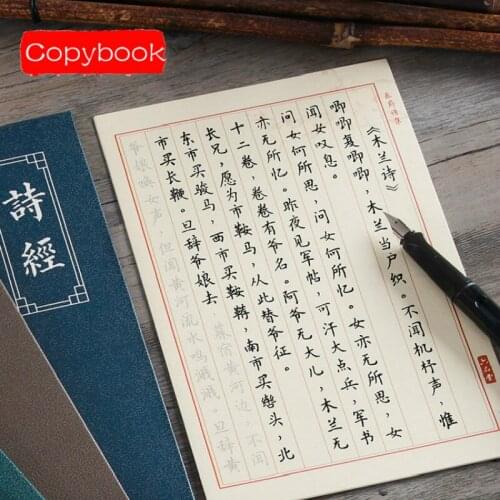 Copybook
詩經
《木兰诗》
唧唧复唧唧，木兰当户织。不闻机杼声，惟
闻女叹息。
问女何所思，问女何所忆。女亦无所思，女
亦无所忆。昨夜见军帖，可汗大点兵，军书
十二卷，卷卷有爷名。阿爷无大儿，木兰无
长兄，愿为市鞍马，从此替爷征。
东市买骏马，西市买鞍鞯，南市买辔头，北
市买长鞭。旦辞爷娘去，暮宿黄河边，不闻
爷娘唤女声，但闻黄河流水鸣溅溅。旦辞黄